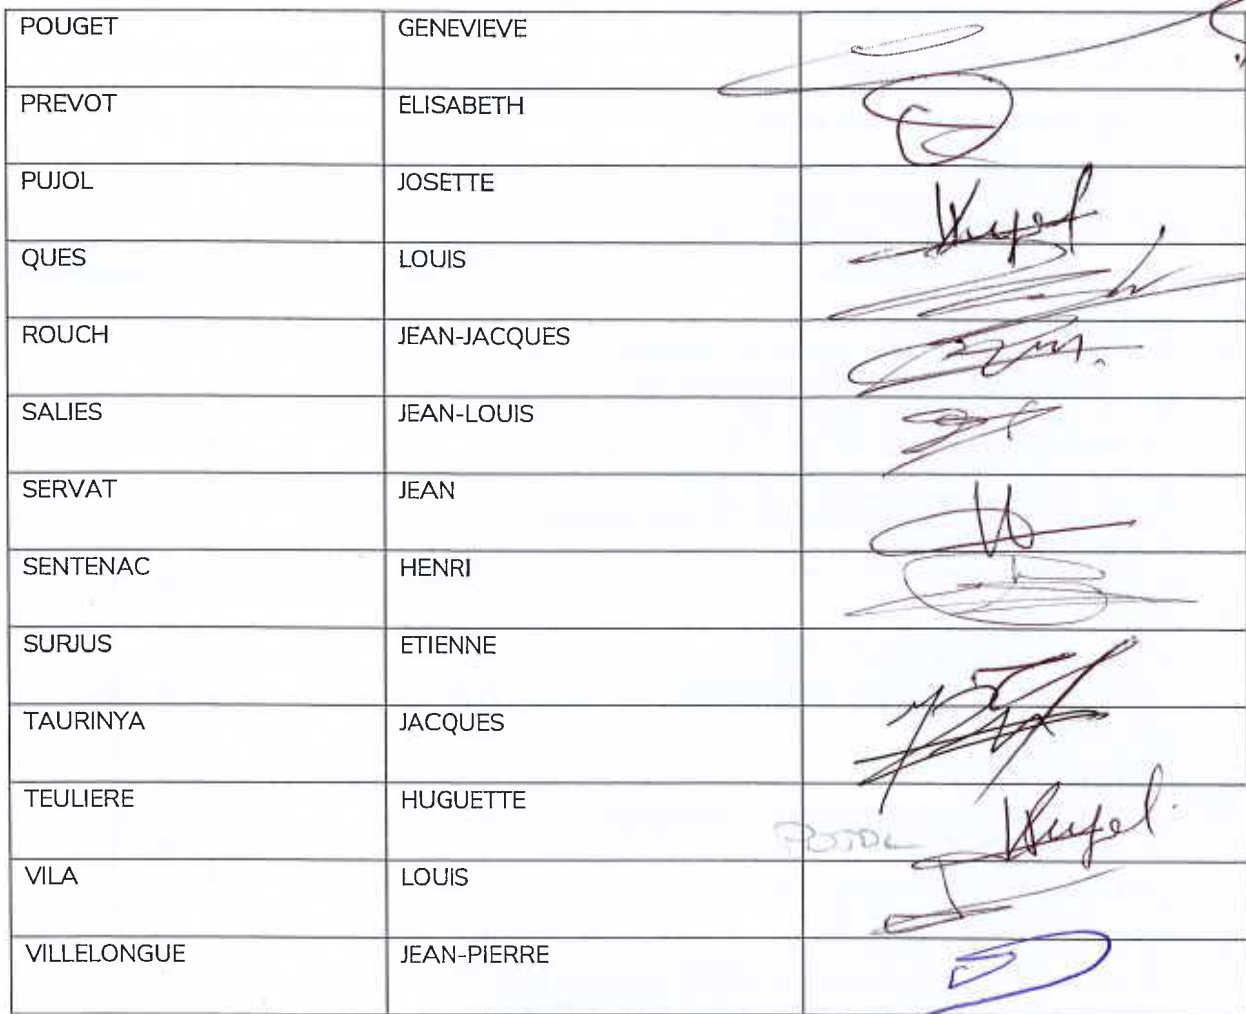 POUGET GENEVIEVE
PREVOT ELISABETH
PUJOL JOSETTE
QUES LOUIS
ROUCH JEAN-JACQUES
SALIES JEAN-LOUIS
SERVAT JEAN
SENTENAC HENRI
SURJUS ETIENNE
TAURINYA JACQUES
TEULIERE HUGUETTE
VILA LOUIS
VILLELONGUE JEAN-PIERRE